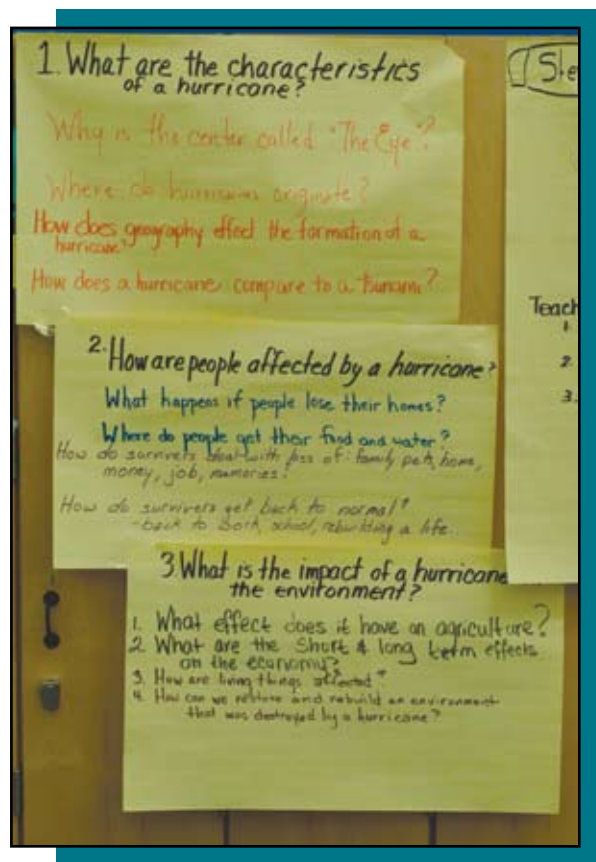 1. What are the characteristics
of a hurricane?
Why is the center called "The Eye"?
Where do hurricanes originate?
How does geography effect the formation of a
hurricane?
How does a hurricane compare to a tsunami?
2. How are people affected by a hurricane?
What happens if people lose their homes?
Where do people get their food and water?
How do survivers deal with loss of: family pets, home,
money, job, memories?
How do survivers get back to normal?
-back to work, school, rebuilding a life.
3. What is the impact of a hurricane
the environment?
1. What effect does it have on agriculture?
2 What are the short & long term effects
on the economy?
3. How are living things affected?
4. How can we restore and rebuild an environment
that was destroyed by a hurricane?
Ste
Teach
1.
2.
3.